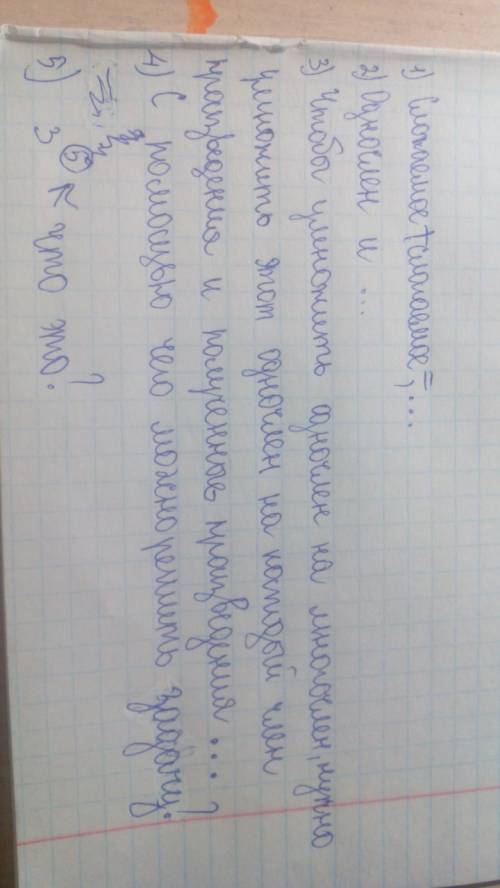 1) Слагаемое + слагаемое = ...
2) Одночлен и ...
3) Чтобы умножить одночлен на многочлен, нужно
умножить этот одночлен на каждый член
произведения и полученные произведения ... ?
4) С помощью чего можно решить задачу.
5) 3 5 ← что это?